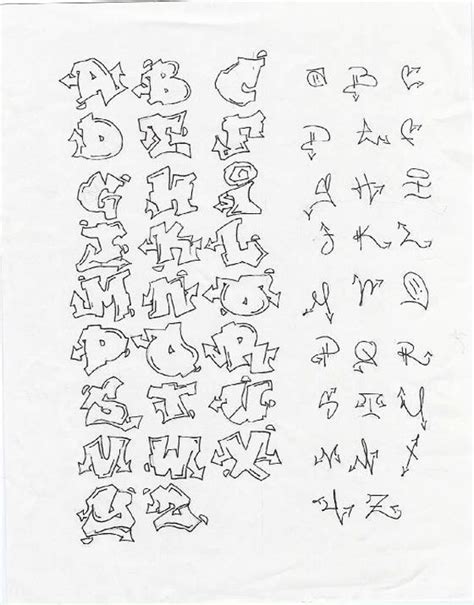 A B C
D E F
G H I
J K L
M N O
P Q R
S T U
V W X
Y Z
A B C
D E F
G H I
J K L
M N O
P Q R
S T U
V W X
Y Z